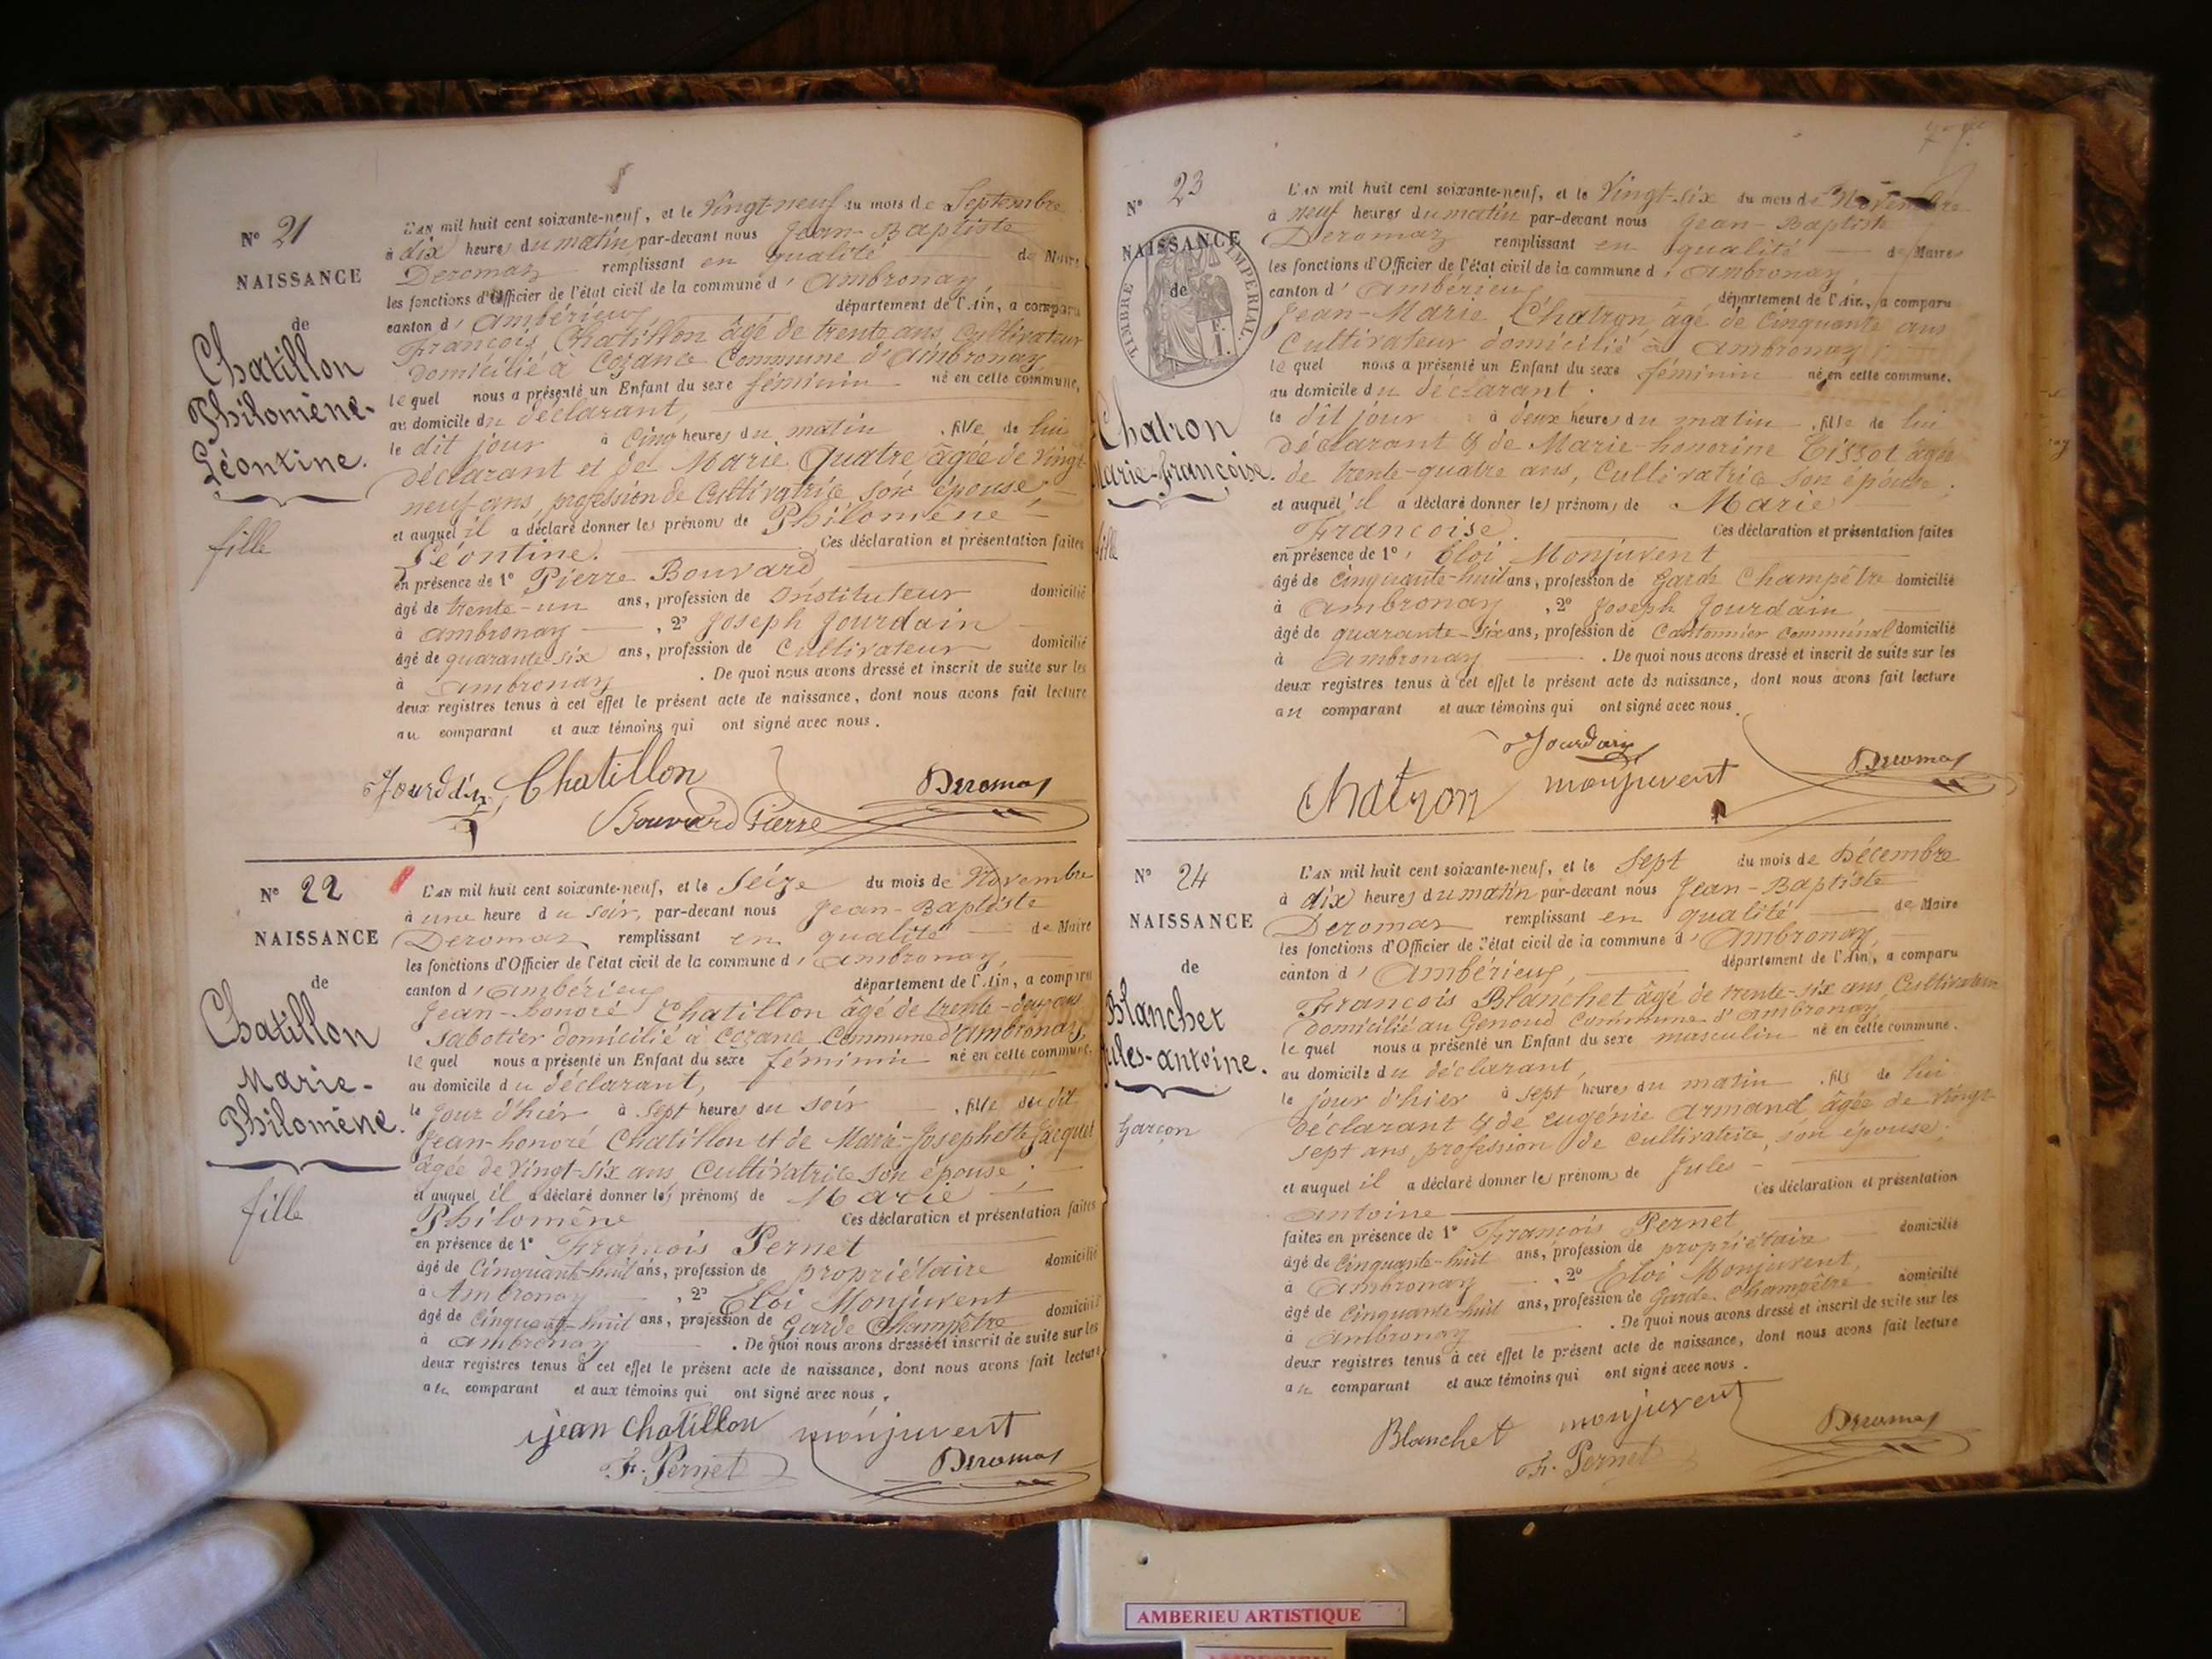 N° 21
NAISSANCE
de
Chatillon
Philomène-
Léontine.
fille
L'AN mil huit cent soixante-neuf, et le Vingt neuf du mois de Septembre
à dix heures du matin, par-devant nous Jean-Baptiste
Deromas remplissant en qualité de Maire
les fonctions d'Officier de l'état civil de la commune d'Ambronay
canton d'Ambérieux département de l'Ain, a comparu
François Chatillon âgé de trente ans, Cultivateur
domicilié à Cozance Commune d'Ambronay,
lequel nous a présenté un Enfant du sexe féminin né en cette commune,
au domicile du déclarant,
le dit jour à Cinq heures du matin, fille de lui
déclarant et de Marie Quatre âgée de Vingt-
neuf ans, profession de Cultivatrice son épouse;
et auquel il a déclaré donner les prénoms de Philomène
Léontine. Ces déclaration et présentation faites
en présence de 1° Pierre Bouvard
âgé de trente-un ans, profession de Instituteur domicilié
à Ambronay, 2° Joseph Jourdain
âgé de quarante six ans, profession de Cultivateur domicilié
à Ambronay. De quoi nous avons dressé et inscrit de suite sur les
deux registres tenus à cet effet le présent acte de naissance, dont nous avons fait lecture
au comparant et aux témoins qui ont signé avec nous.
Jourdin Chatillon Deromas
Bouvard Pierre
N° 22
NAISSANCE
de
Chatillon
Marie-
Philomène.
fille
L'AN mil huit cent soixante-neuf, et le Seize du mois de Novembre
à une heure du soir, par-devant nous Jean-Baptiste
Deromas remplissant en qualité de Maire
les fonctions d'Officier de l'état civil de la commune d'Ambronay,
canton d'Ambérieux département de l'Ain, a comparu
Jean-honoré Chatillon âgé de trente-deux ans
Sabotier domicilié à Cozance Commune d'Ambronay,
lequel nous a présenté un Enfant du sexe féminin né en cette commune,
au domicile du déclarant,
le jour d'hier à Sept heures du soir, fille du dit
Jean-honoré Chatillon et de Marie-Josephette Jacquet
âgée de Vingt-six ans Cultivatrice son épouse;
et auquel il a déclaré donner les prénoms de Marie
Philomène Ces déclaration et présentation faites
en présence de 1° François Pernet
âgé de Cinquante-huit ans, profession de propriétaire domicilié
à Ambronay, 2° Eloi Monjuvent
âgé de Cinquante-huit ans, profession de Garde Champêtre domicilié
à Ambronay. De quoi nous avons dressé et inscrit de suite sur les
deux registres tenus à cet effet le présent acte de naissance, dont nous avons fait lecture
au comparant et aux témoins qui ont signé avec nous.
jean chatillon monjuvent
Fr. Pernet Deromas
N° 23
NAISSANCE
de
TIMBRE IMPERIAL.
Chatron
Marie-françoise.
fille
L'AN mil huit cent soixante-neuf, et le Vingt-six du mois de Novembre
à neuf heures du matin par-devant nous Jean-Baptiste
Deromas remplissant en qualité de Maire
les fonctions d'Officier de l'état civil de la commune d'Ambronay
canton d'Ambérieux département de l'Ain, a comparu
Jean-Marie Chatron, âgé de Cinquante ans
Cultivateur domicilié à Ambronay
lequel nous a présenté un Enfant du sexe féminin né en cette commune.
au domicile du déclarant.
le dit jour à deux heures du matin, fille de lui
déclarant & de Marie-honorine Tissot âgée
de trente-quatre ans, Cultivatrice son épouse;
et auquel il a déclaré donner les prénoms de Marie
Françoise. Ces déclaration et présentation faites
en présence de 1°, Eloi Monjuvent
âgé de Cinquante-huit ans, profession de Garde Champêtre domicilié
à Ambronay, 2° Joseph Jourdain
âgé de quarante-six ans, profession de Cantonnier Communal domicilié
à Ambronay. De quoi nous avons dressé et inscrit de suite sur les
deux registres tenus à cet effet le présent acte de naissance, dont nous avons fait lecture
au comparant et aux témoins qui ont signé avec nous.
Jourdain
Chatron monjuvent Deromas
N° 24
NAISSANCE
de
Blanchet
Jules-antoine.
Garçon
L'AN mil huit cent soixante-neuf, et le Sept du mois de Décembre
à dix heures du matin par-devant nous Jean-Baptiste
Deromas remplissant en qualité de Maire
les fonctions d'Officier de l'état civil de la commune d'Ambronay,
canton d'Ambérieux, département de l'Ain, a comparu
François Blanchet âgé de trente-six ans, Cultivateur
domicilié au Genoud Commune d'Ambronay
lequel nous a présenté un Enfant du sexe masculin né en cette commune.
au domicile du déclarant,
le jour d'hier à sept heures du matin, fils de lui
déclarant & de eugénie armand âgée de Vingt-
sept ans, profession de cultivatrice, son épouse;
et auquel il a déclaré donner les prénoms de Jules
Ces déclaration et présentation
antoine
faites en présence de 1° François Pernet
âgé de Cinquante-huit ans, profession de propriétaire domicilié
à Ambronay, 2° Eloi Monjuvent,
âgé de Cinquante-huit ans, profession de Garde Champêtre domicilié
à Ambronay. De quoi nous avons dressé et inscrit de suite sur les
deux registres tenus à cet effet le présent acte de naissance, dont nous avons fait lecture
au comparant et aux témoins qui ont signé avec nous.
Blanchet monjuvent Deromas
Fr. Pernet
AMBERIEU ARTISTIQUE